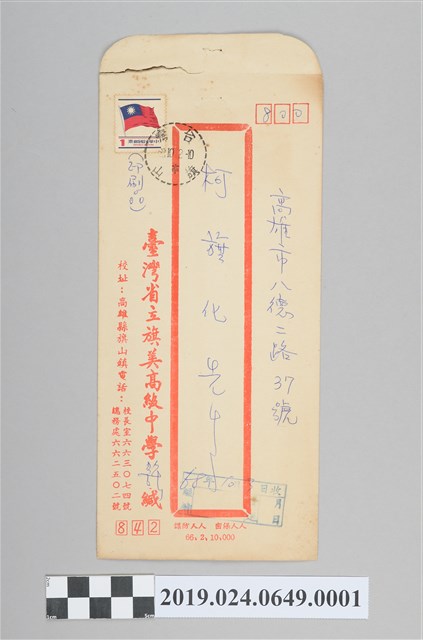 800
高雄市八德二路37號
柯旗化先生
(印刷品)
臺灣省立旗美高級中學
緘
校址：高雄縣旗山鎮電話：
校長室六六三〇七四號
總務處六六二五〇二號
842
人人防諜 人人保密
66,2,10,000
收
日 月
2019.024.0649.0001